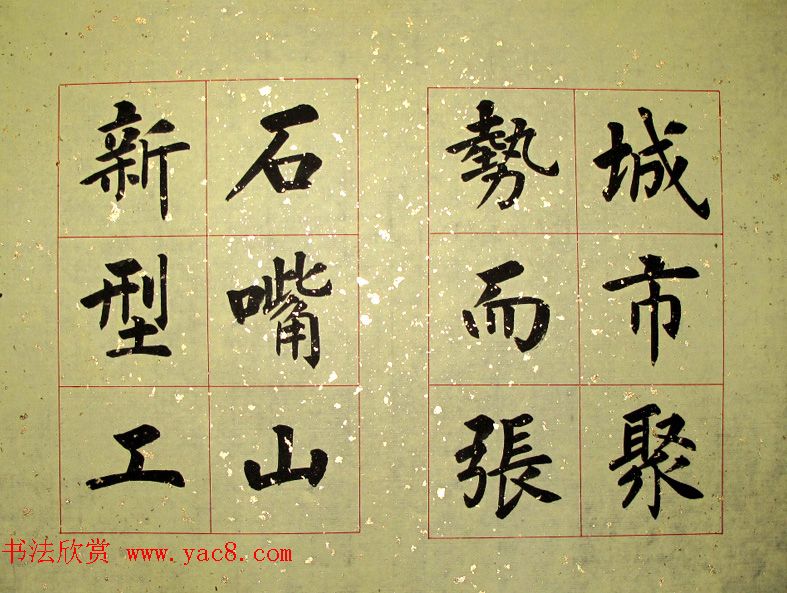 城市聚
勢而張
石嘴山
新型工
书法欣赏 www.yac8.com